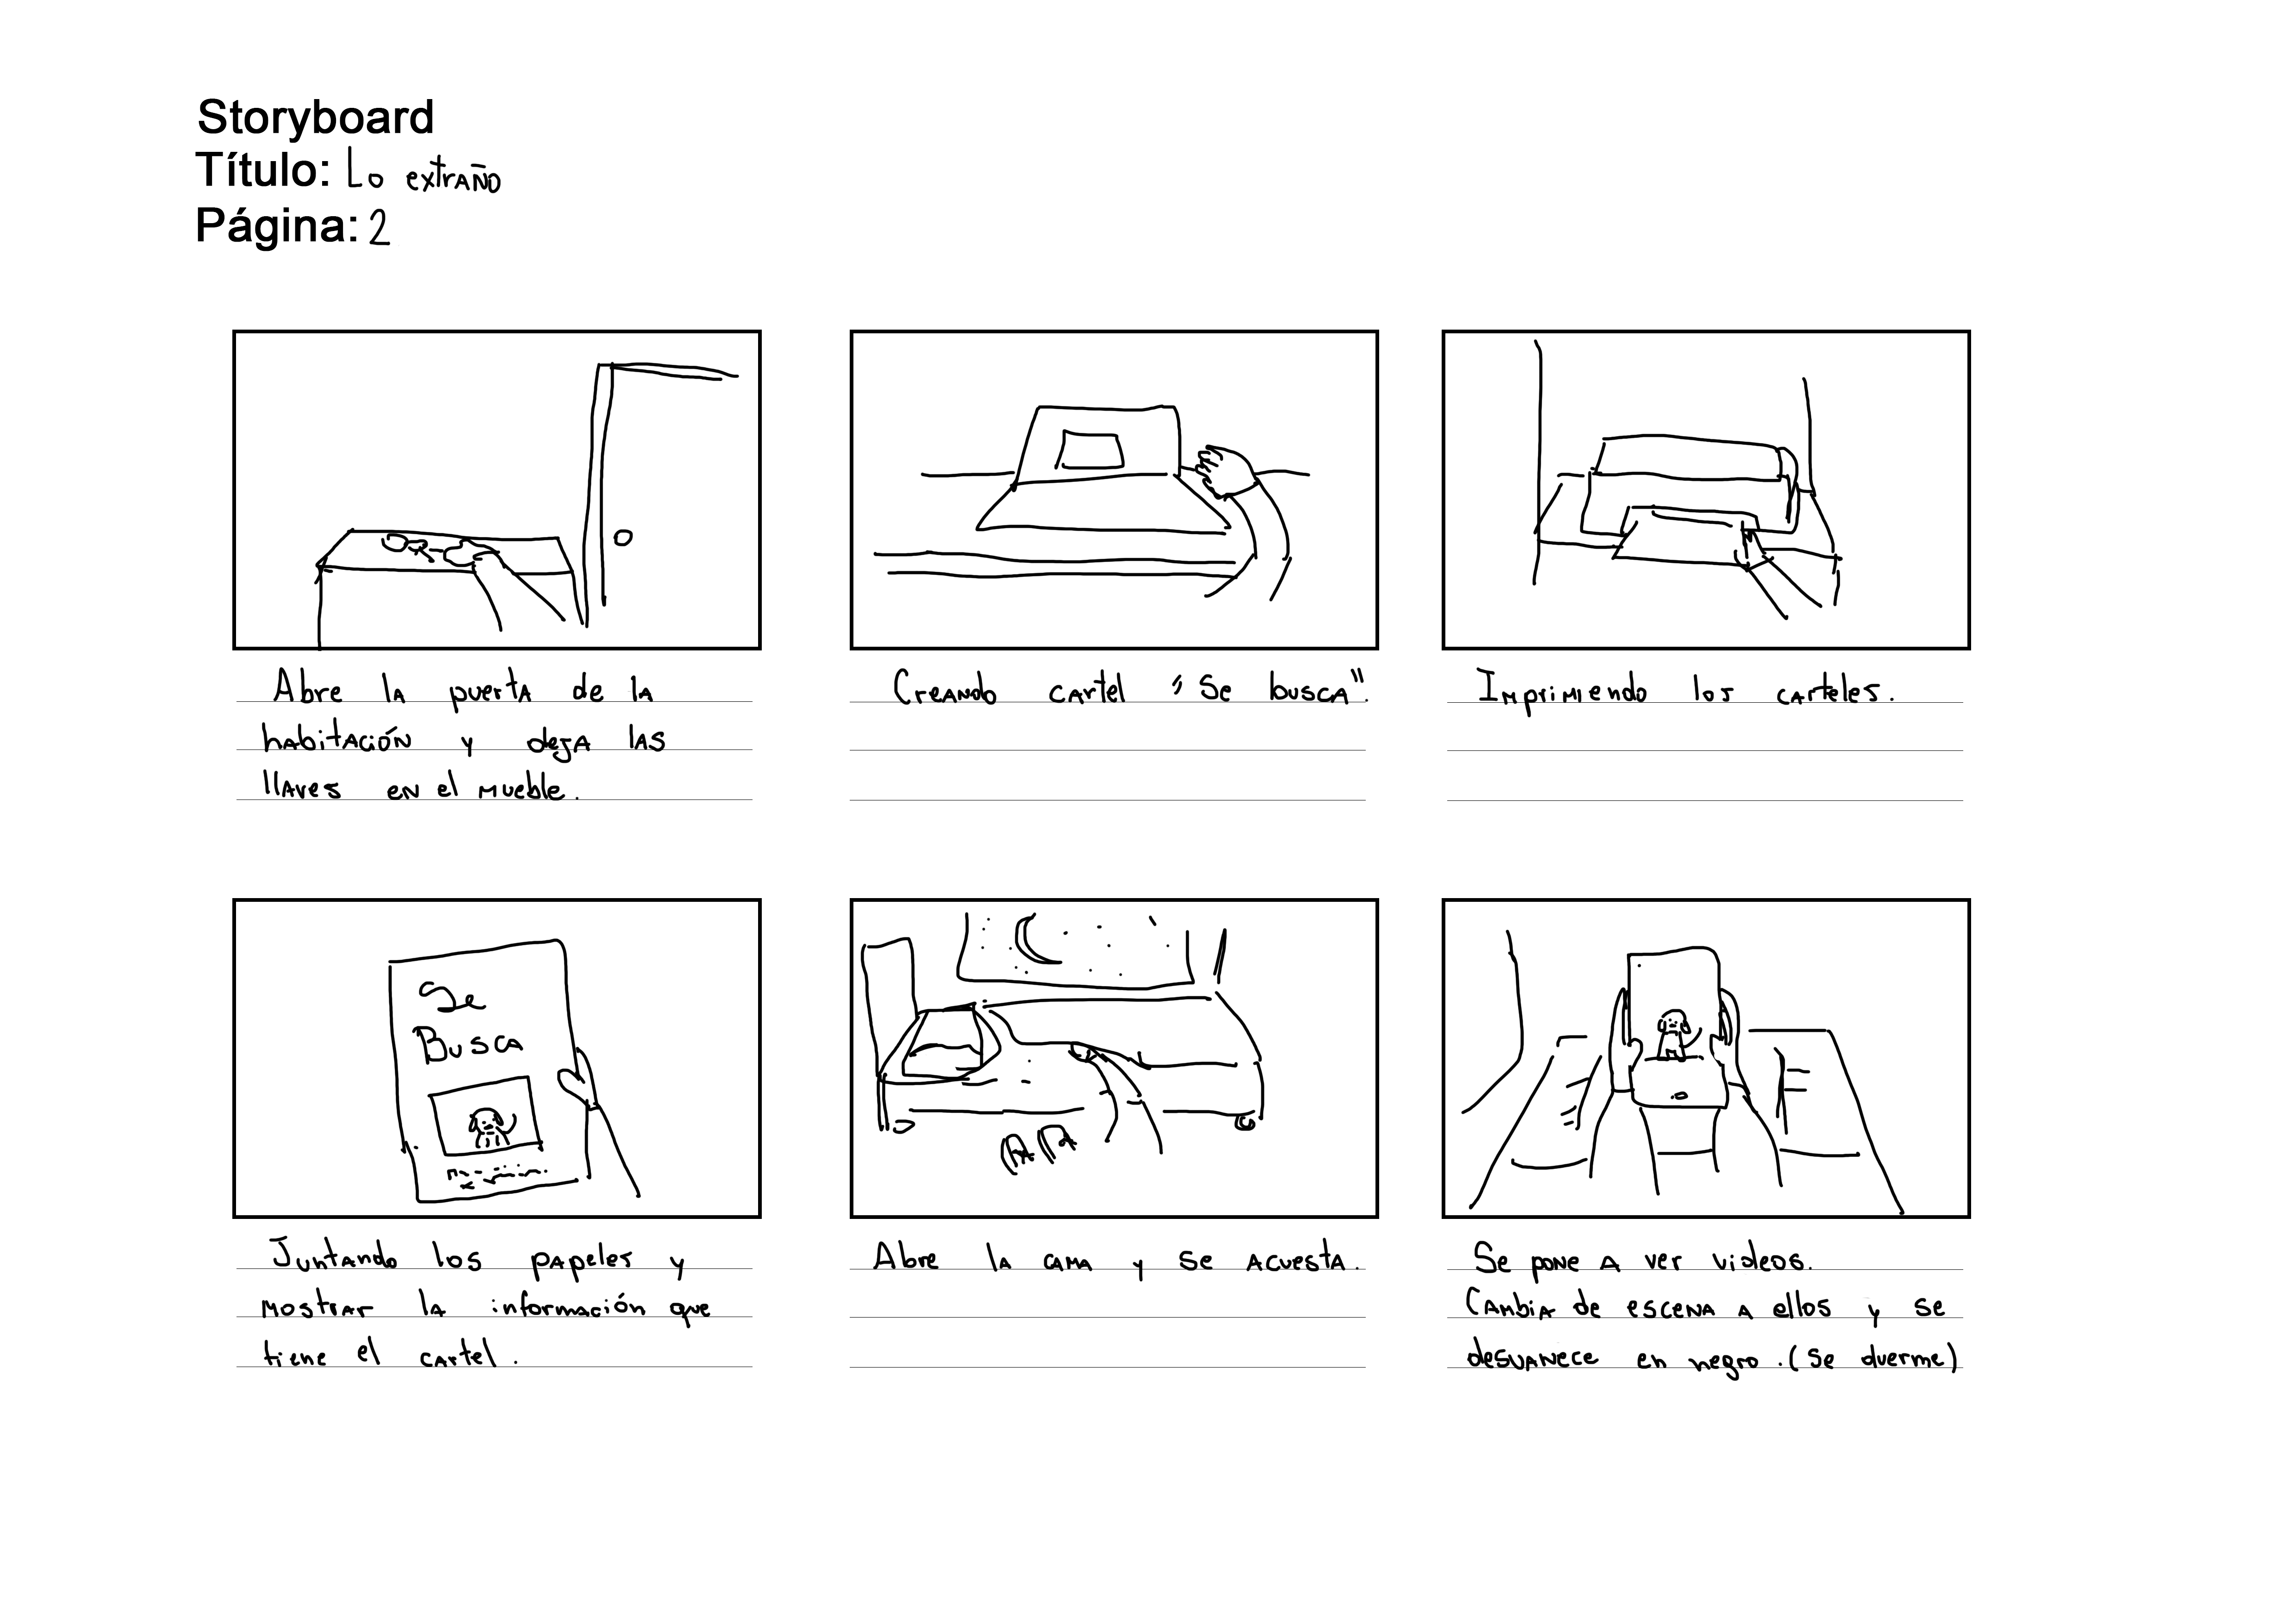 Storyboard
Título: Lo extraño
Página: 2
Abre la puerta de la
habitación y deja las
llaves en el mueble.
Creando cartel "Se busca".
Imprimiendo los carteles.
Se
Busca
Juntando los papeles y
mostrar la información que
tiene el cartel.
Abre la cama y se acuesta.
Se pone a ver videos.
Cambia de escena a ellos y se
desvanece en negro. (Se duerme)